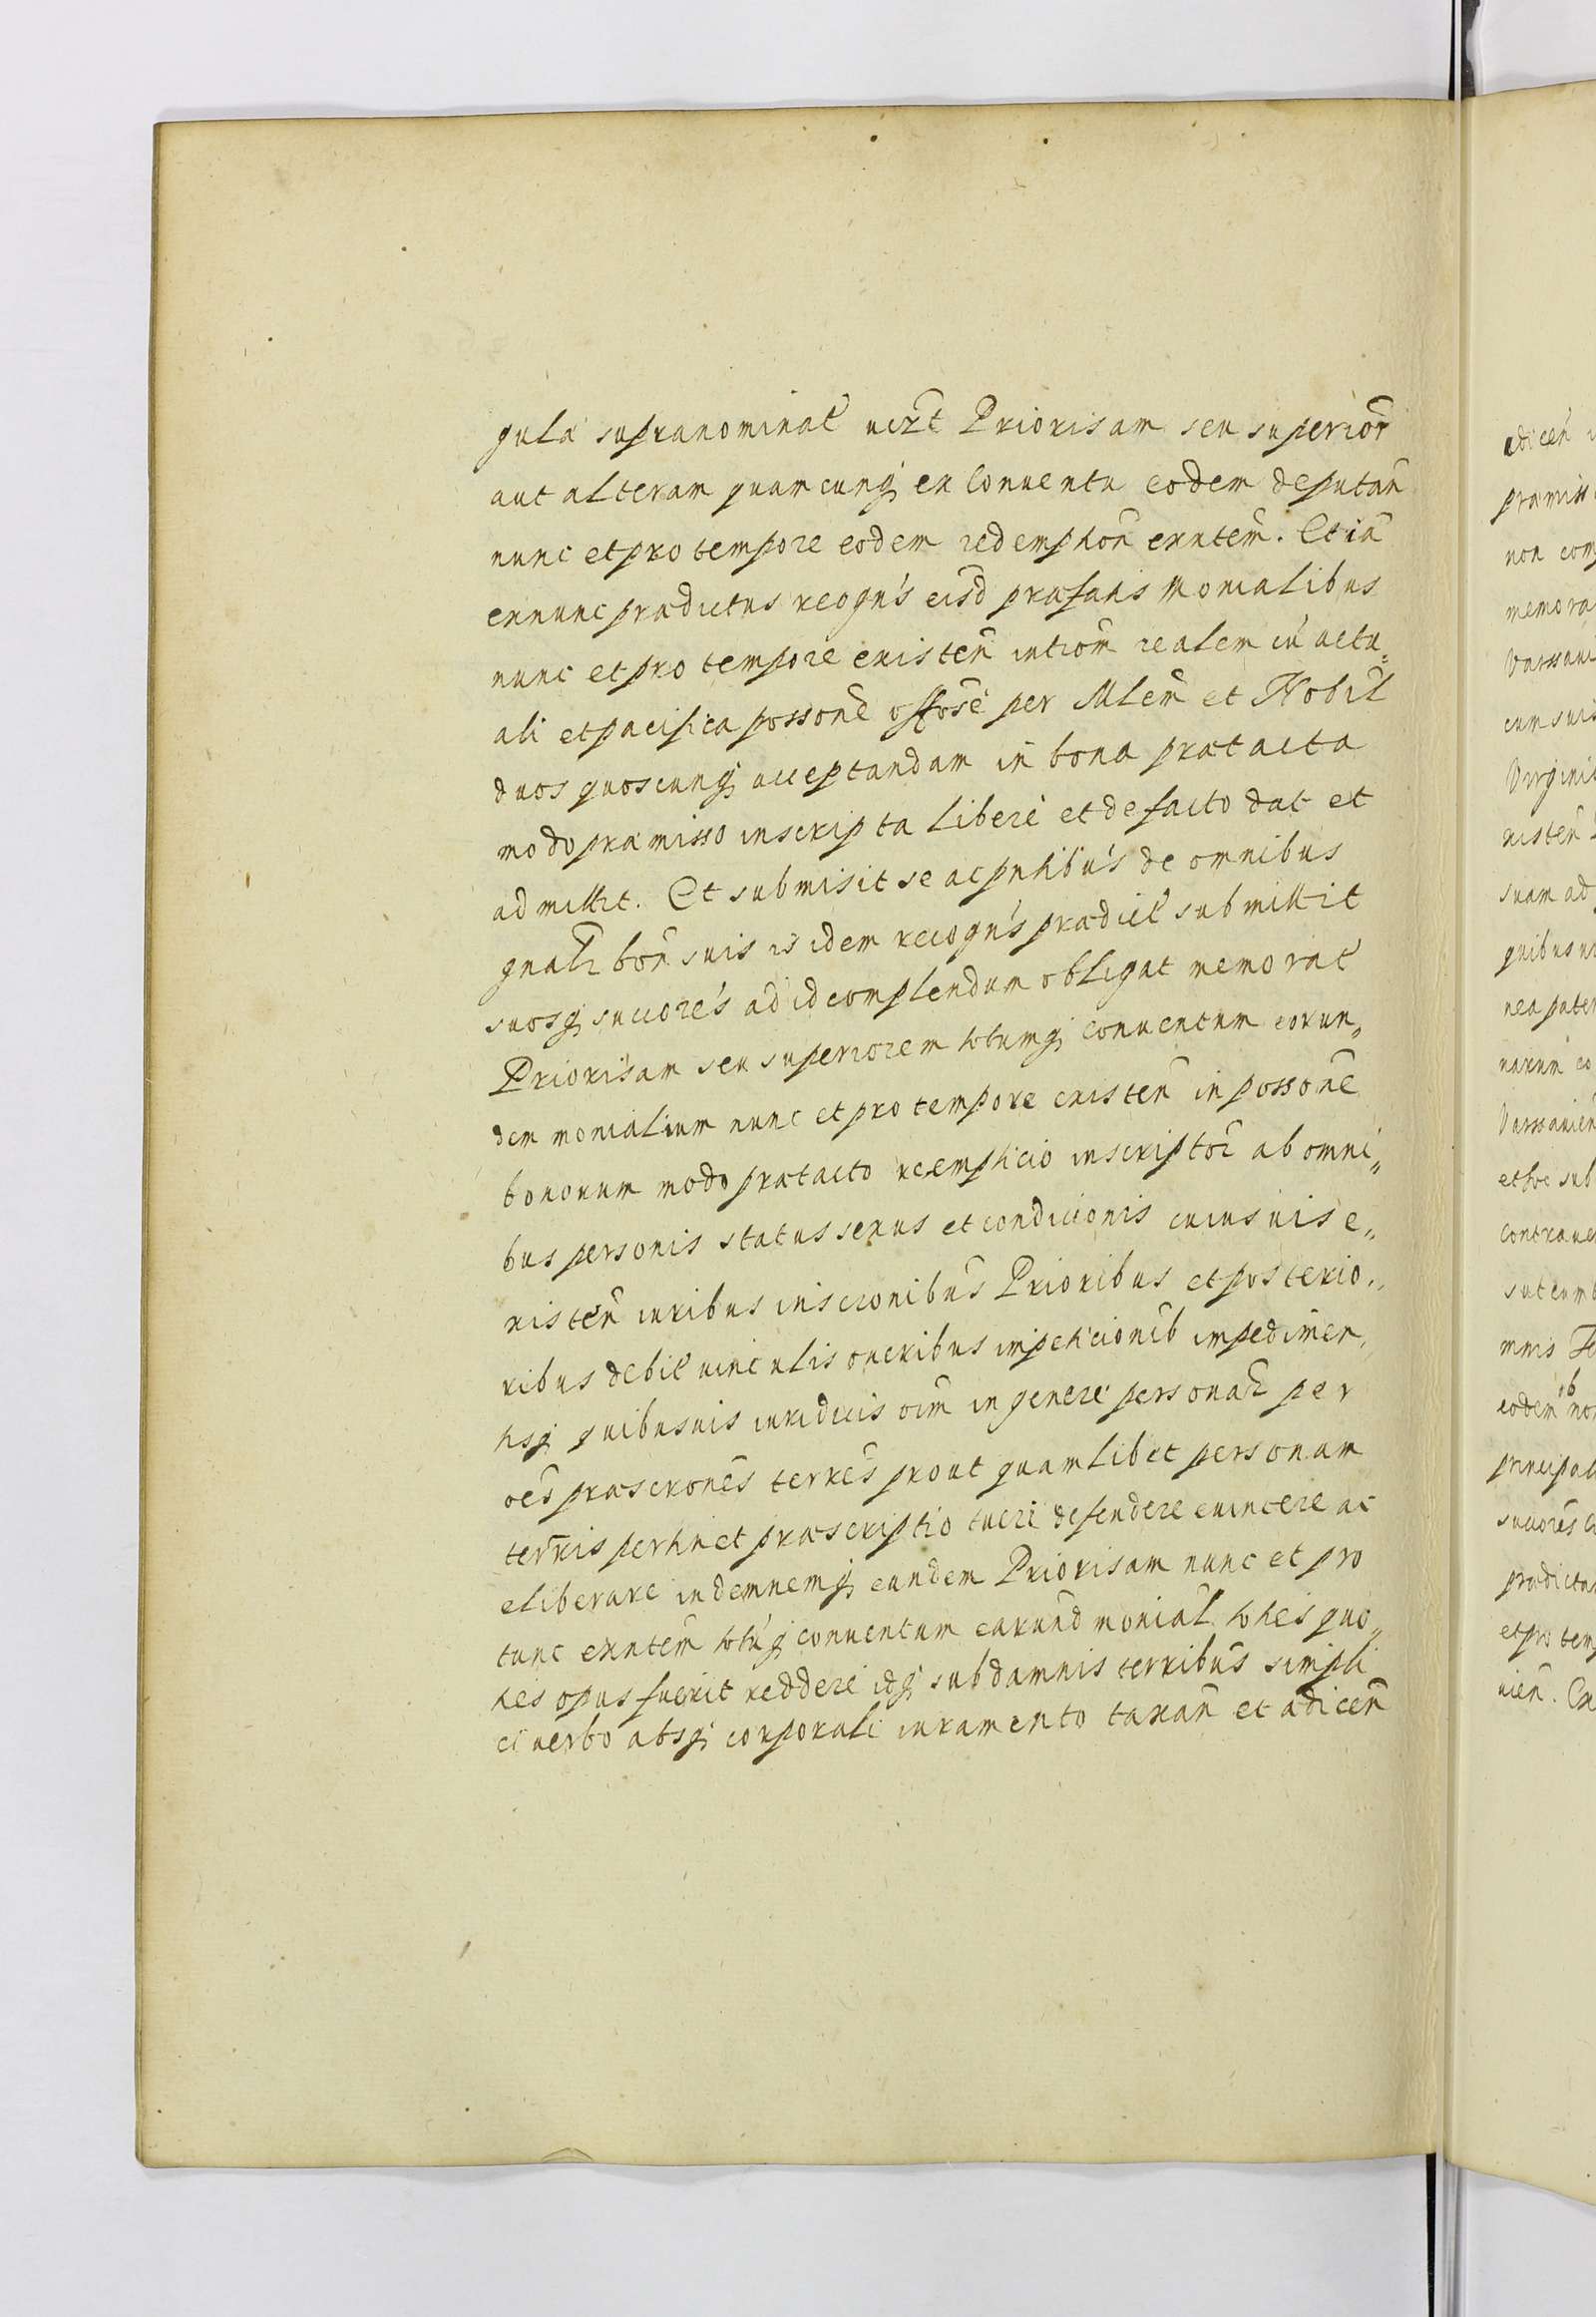 gula supranominat̃ uirt̃ Priorisam seu superior̃
aut alteram quamcunq; ex Conuentu eodem deputañ
nunc et pro tempore eodem redemption̄ exntem̃. Et iã
exnunc prædictus recogñs eisd̃ præfatis Monialibus
nunc et pro tempore existeñ intrõm realem in actu„
ali et pacifica posson̄e offose per Mlem̃ et Nobil̃
duos quoscunq; acceptandam in bona prætacta
modo præmisso inscripta libere et de facto dat et
admittit. Et submisit se ac pntibus de omnibus
gnalr̃ bon̄ suis is idem recogñs prædict̃ submittit
suosq; succores ad id complendum obligat memorat̃
Priorisam seu superiorem totumq; conuentum eorun„
dem monialium nunc et pro tempore existeñ in possone̅
bonorum modo prætacto reemp̃ticio inscriptor̃ ab omni„
bus personis status sexus et condicionis cuiusuis e„
xisteñ iuribus inscronibus Prioribus et posterio„
ribus debit̃ uinculis oneribus impeticionib̃ impedimen„
tisq; quibusuis iuridicis oim̃ in genere personar̃ per
oẽs præscrones terres prout quamlibet personam
terris pertinet præscriptio tueri defendere euincere ac
eliberare indemnemq; eandem Priorisam nunc et pro
tunc exntem̃ totũq; conuentum earund̃ monial̃ toties quo„
ties opus fuerit reddere idq; sub damnis terribus simpli
ci uerbo absq; corporali iuramento taxan̄ et adicen̄